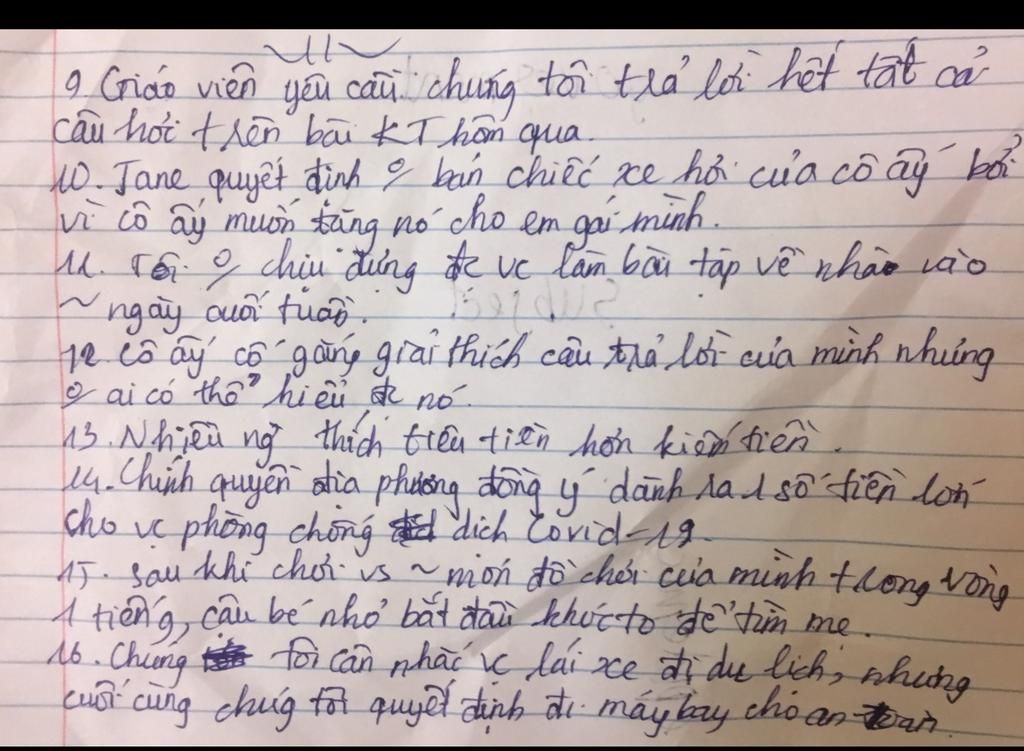 9. Giáo viên yêu cầu chúng tôi trả lời hết tất cả
câu hỏi trên bài KT hôm qua.
10. Jane quyết định o/ bán chiếc xe hơi của cô ấy bởi
vì cô ấy muốn tặng nó cho em gái mình.
11. Tôi o/ chịu đựng đc vc làm bài tập về nhà vào
~ ngày cuối tuần.
12. Cô ấy cố gắng giải thích câu trả lời của mình nhưng
o/ ai có thể hiểu đc nó.
13. Nhiều ng` thích tiêu tiền hơn kiếm tiền.
14. Chính quyền địa phương đồng ý dành ra 1 số tiền lớn
cho vc phòng chống dịch Covid-19.
15. Sau khi chơi vs ~ món đồ chơi của mình trong vòng
1 tiếng, cậu bé nhỏ bắt đầu khóc to để tìm mẹ.
16. Chúng tôi cân nhắc vc lái xe đi du lịch, nhưng
cuối cùng chúg tôi quyết định đi máy bay cho an toàn.